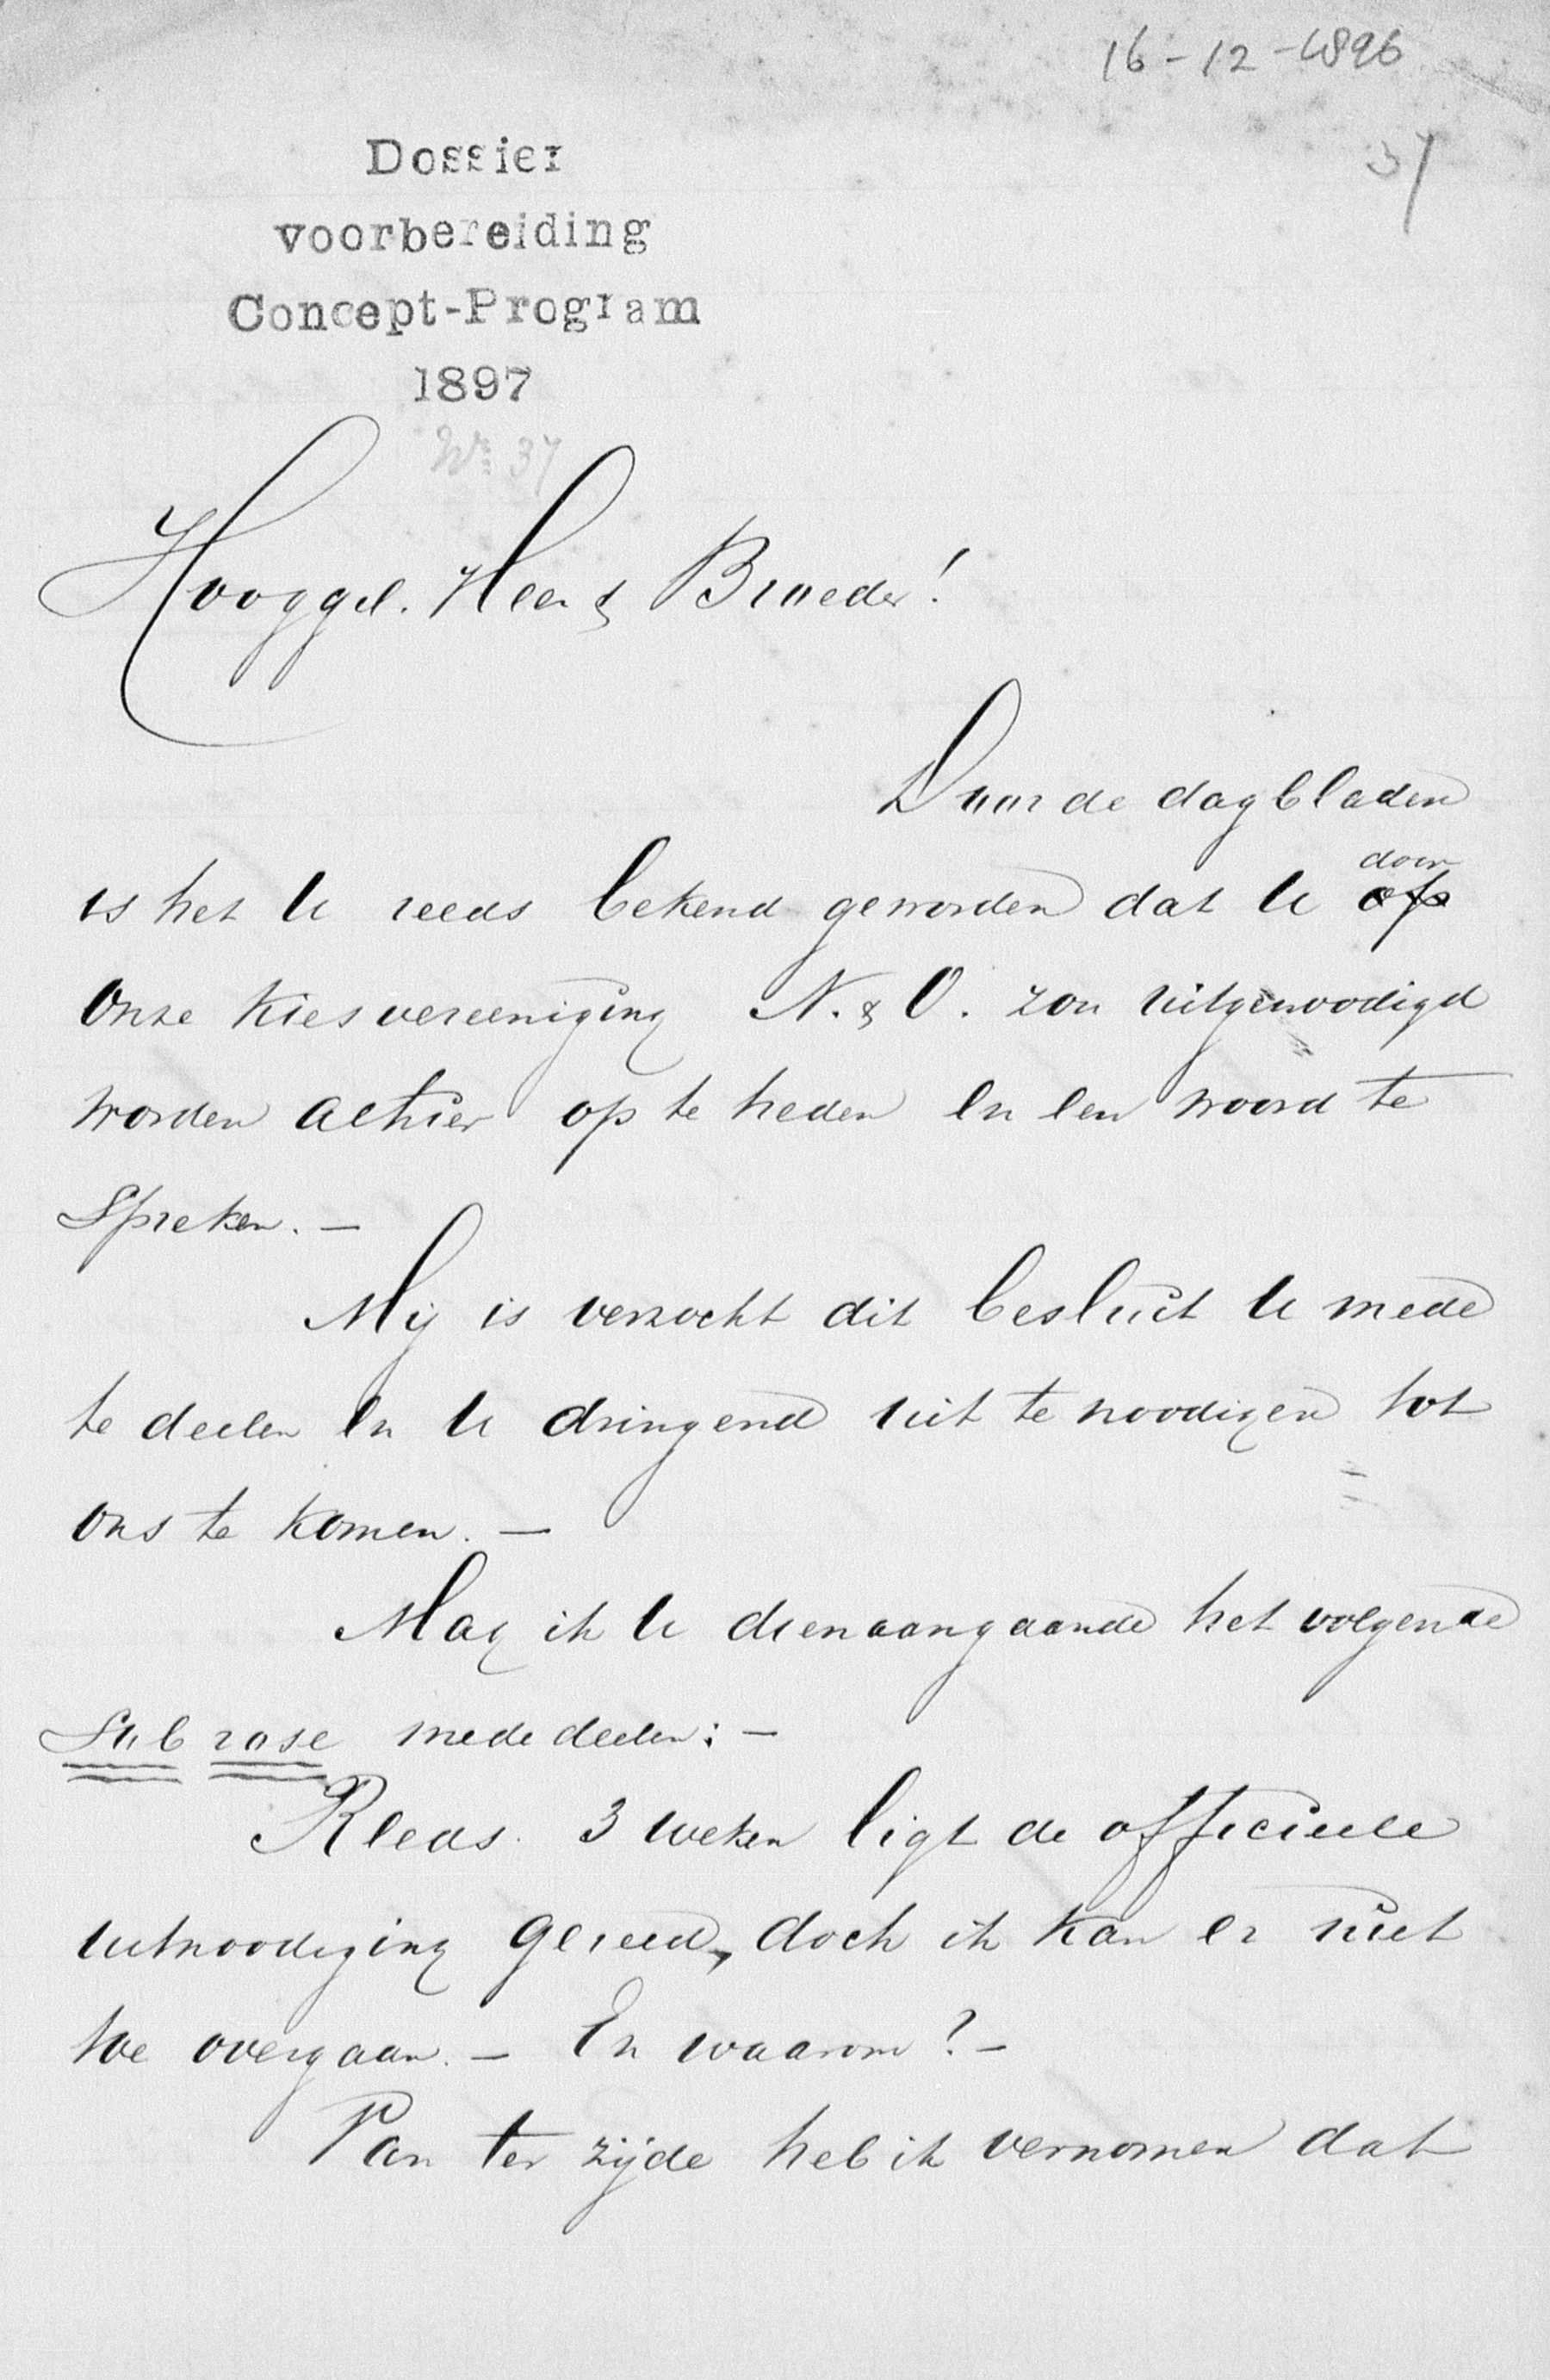 16-12-1896
37
Dossier
voorbereiding
Concept-Program
1897
No 37
Hooggel. Heer & Broeder!
Door de dagbladen
is het U reeds bekend geworden dat U door op
Onze Kiesvereeniging N. & O. zou uitgenoodigd
worden alhier op te treden en een woord te
Spreken. —
Mij is verzocht dit besluit U mede
te deelen en U dringend uit te noodigen tot
ons te komen. —
Mag ik U dienaangaande het volgende
Sub rose mededeelen: —
Reeds 3 weken ligt de officieele
uitnoodiging gereed, doch ik kan er niet
toe overgaan. — En waarom? —
Van ter zijde heb ik vernomen dat